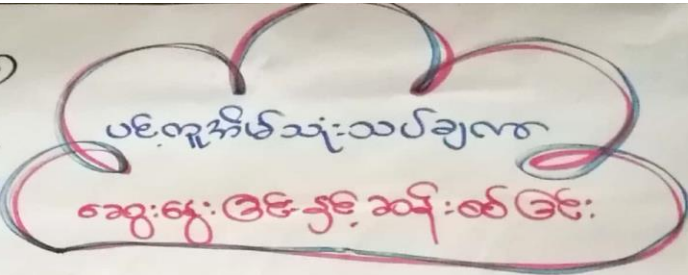 ပင့်ကူအိမ်သုံးသပ်ချက်
ဆွေးနွေးခြင်းနှင့် ဆန်းစစ်ခြင်း